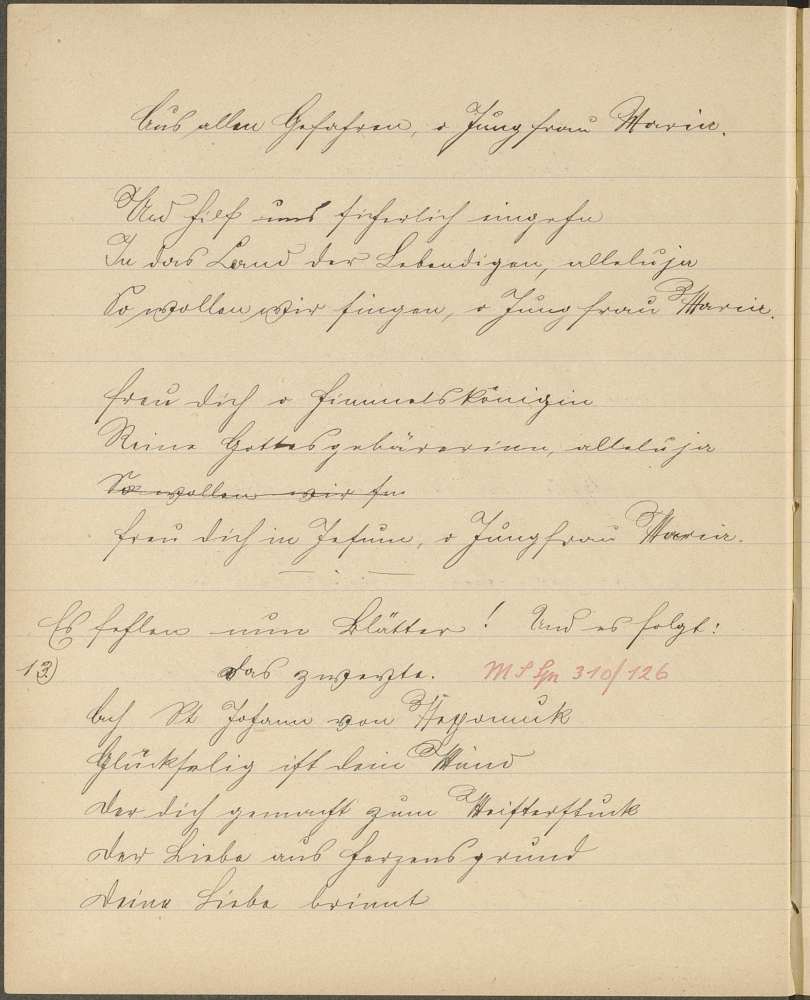 Aus allen Gefahren, o Jungfrau Maria.
Und hilf uns sicherlich eingehn
In das Land der Lebendigen, alleluja
So wollen wir singen, o Jungfrau Maria.
Freu dich o Himmelskönigin
Reine Gottesgebärerinn, alleluja
So wollen wir sin
Freu dich in Jesum, o Jungfrau Maria.
Es fehlen nun Blätter! Und es folgt:
13) Das zweyte. MS Spn 310/126
Ach St Johann von Nepomuk
Glückselig ist dein Mund
Der dich gemacht zum Meisterstuck
Der Liebe aus Herzensgrund
Deine Liebe brinnt